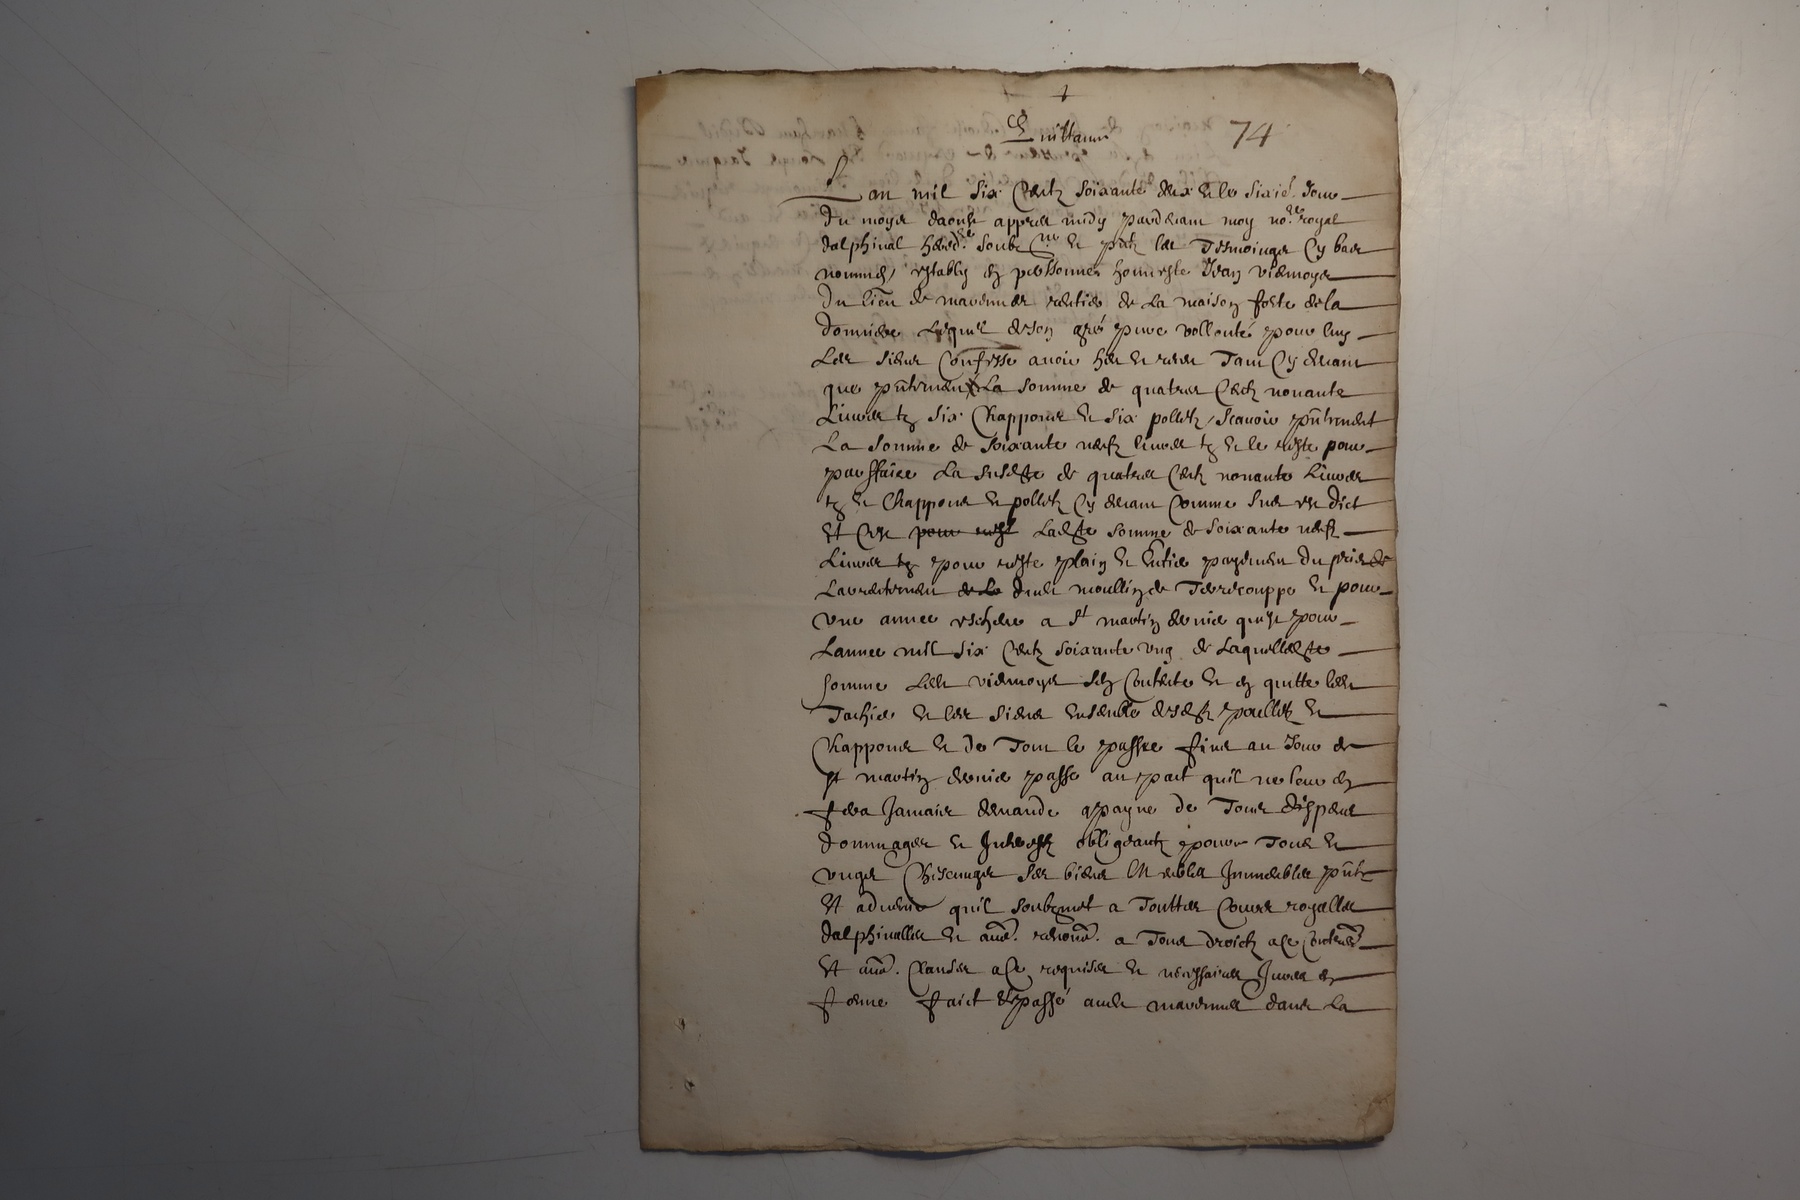 Quittance
74
Lan mil six centz soixante deux et le sixie. Jour
du moys daoust appres midy pardevant moy nore. royal
dalphinal hered.re soubz.ne et putz les Tesmoings cy bas
nommes, estably en personne honneste Jean
du lieu de marennes rentier de La maison forte de la
Lequel de son gré pure vollonté pour luy
Les siens Confesse avoir heu et receu Tant cy devant
que pñtemen La somme de quatre centz nonante
Livres tz six Chappons et six polletz, scavoir pñtement
La somme de soixante neufz livres tz et le reste pour
parffaire La susdte de quatre centz nonante Livres
tz et Chappons et polletz cy devant comme sus est dict
Et cest pour reste Ladte somme de soixante neufz
Livres tz pour reste plain et entier payement du prix de
Larrentement de La dud moullin de et pour
une annee escheue a St martin dernier quest pour
Lannee mil six centz soixante ung de Laquelle dte
somme Led sen contente et en quitte led
et les siens ensemble desdtz poulletz et
Chappons et de Tout le passe fins au Jour de
St martin dernier passe au pact quil ne leur en
fera Jamais demande a payne de Tous despens
dommages et Interestz obligeantz pour Tous et
ungs Chescungs ses biens Meubles Immeubles pñtz
Et advenir quil soubzmet a Touttes Cours royalles
dalphinalles et au.e. renon.e. a Tous droictz a ce contre.es
Et au.e. Clauses a ce requises et necessaires Juree en
forme faict et passé aud marennes dans La